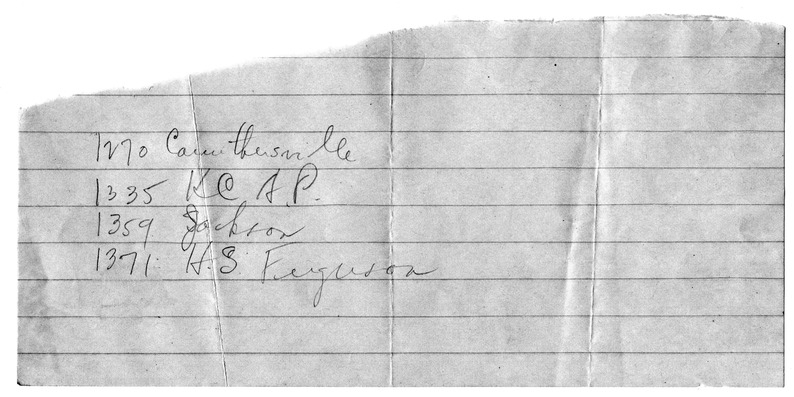 1270 Caruthersville
1335 KC A.P.
1359 Jackson
1371 H.S Ferguson